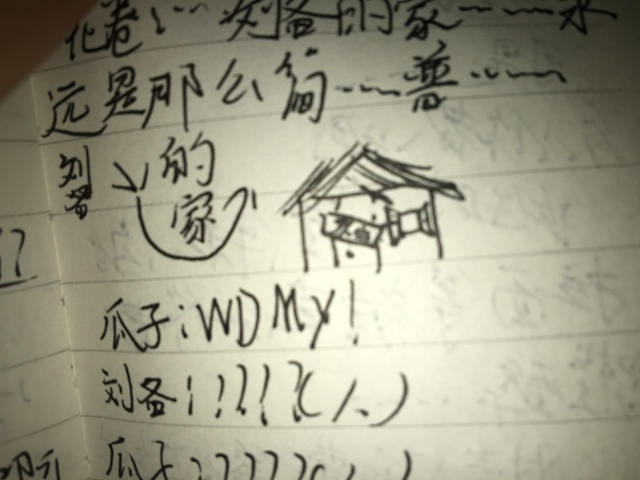 刘备的家~~~永
远是那么简~~~普~~~
刘备的家
瓜子:WDMY!
刘备!!!!(人)
瓜子:????(人)